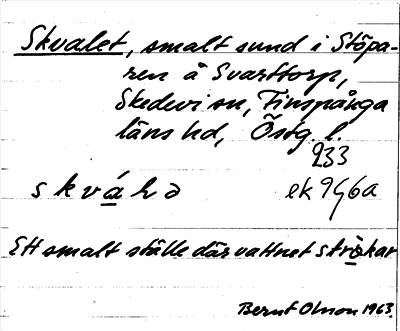 Skvalet, smalt sund i Stöpa-
ren å Svarttorp,
Skedevi sn, Finspånga
läns hd, Östg. l.
233
skváḷə ek 9G6a
Ett smalt ställe där vattnet strökar
Bernt Olsson 1963.